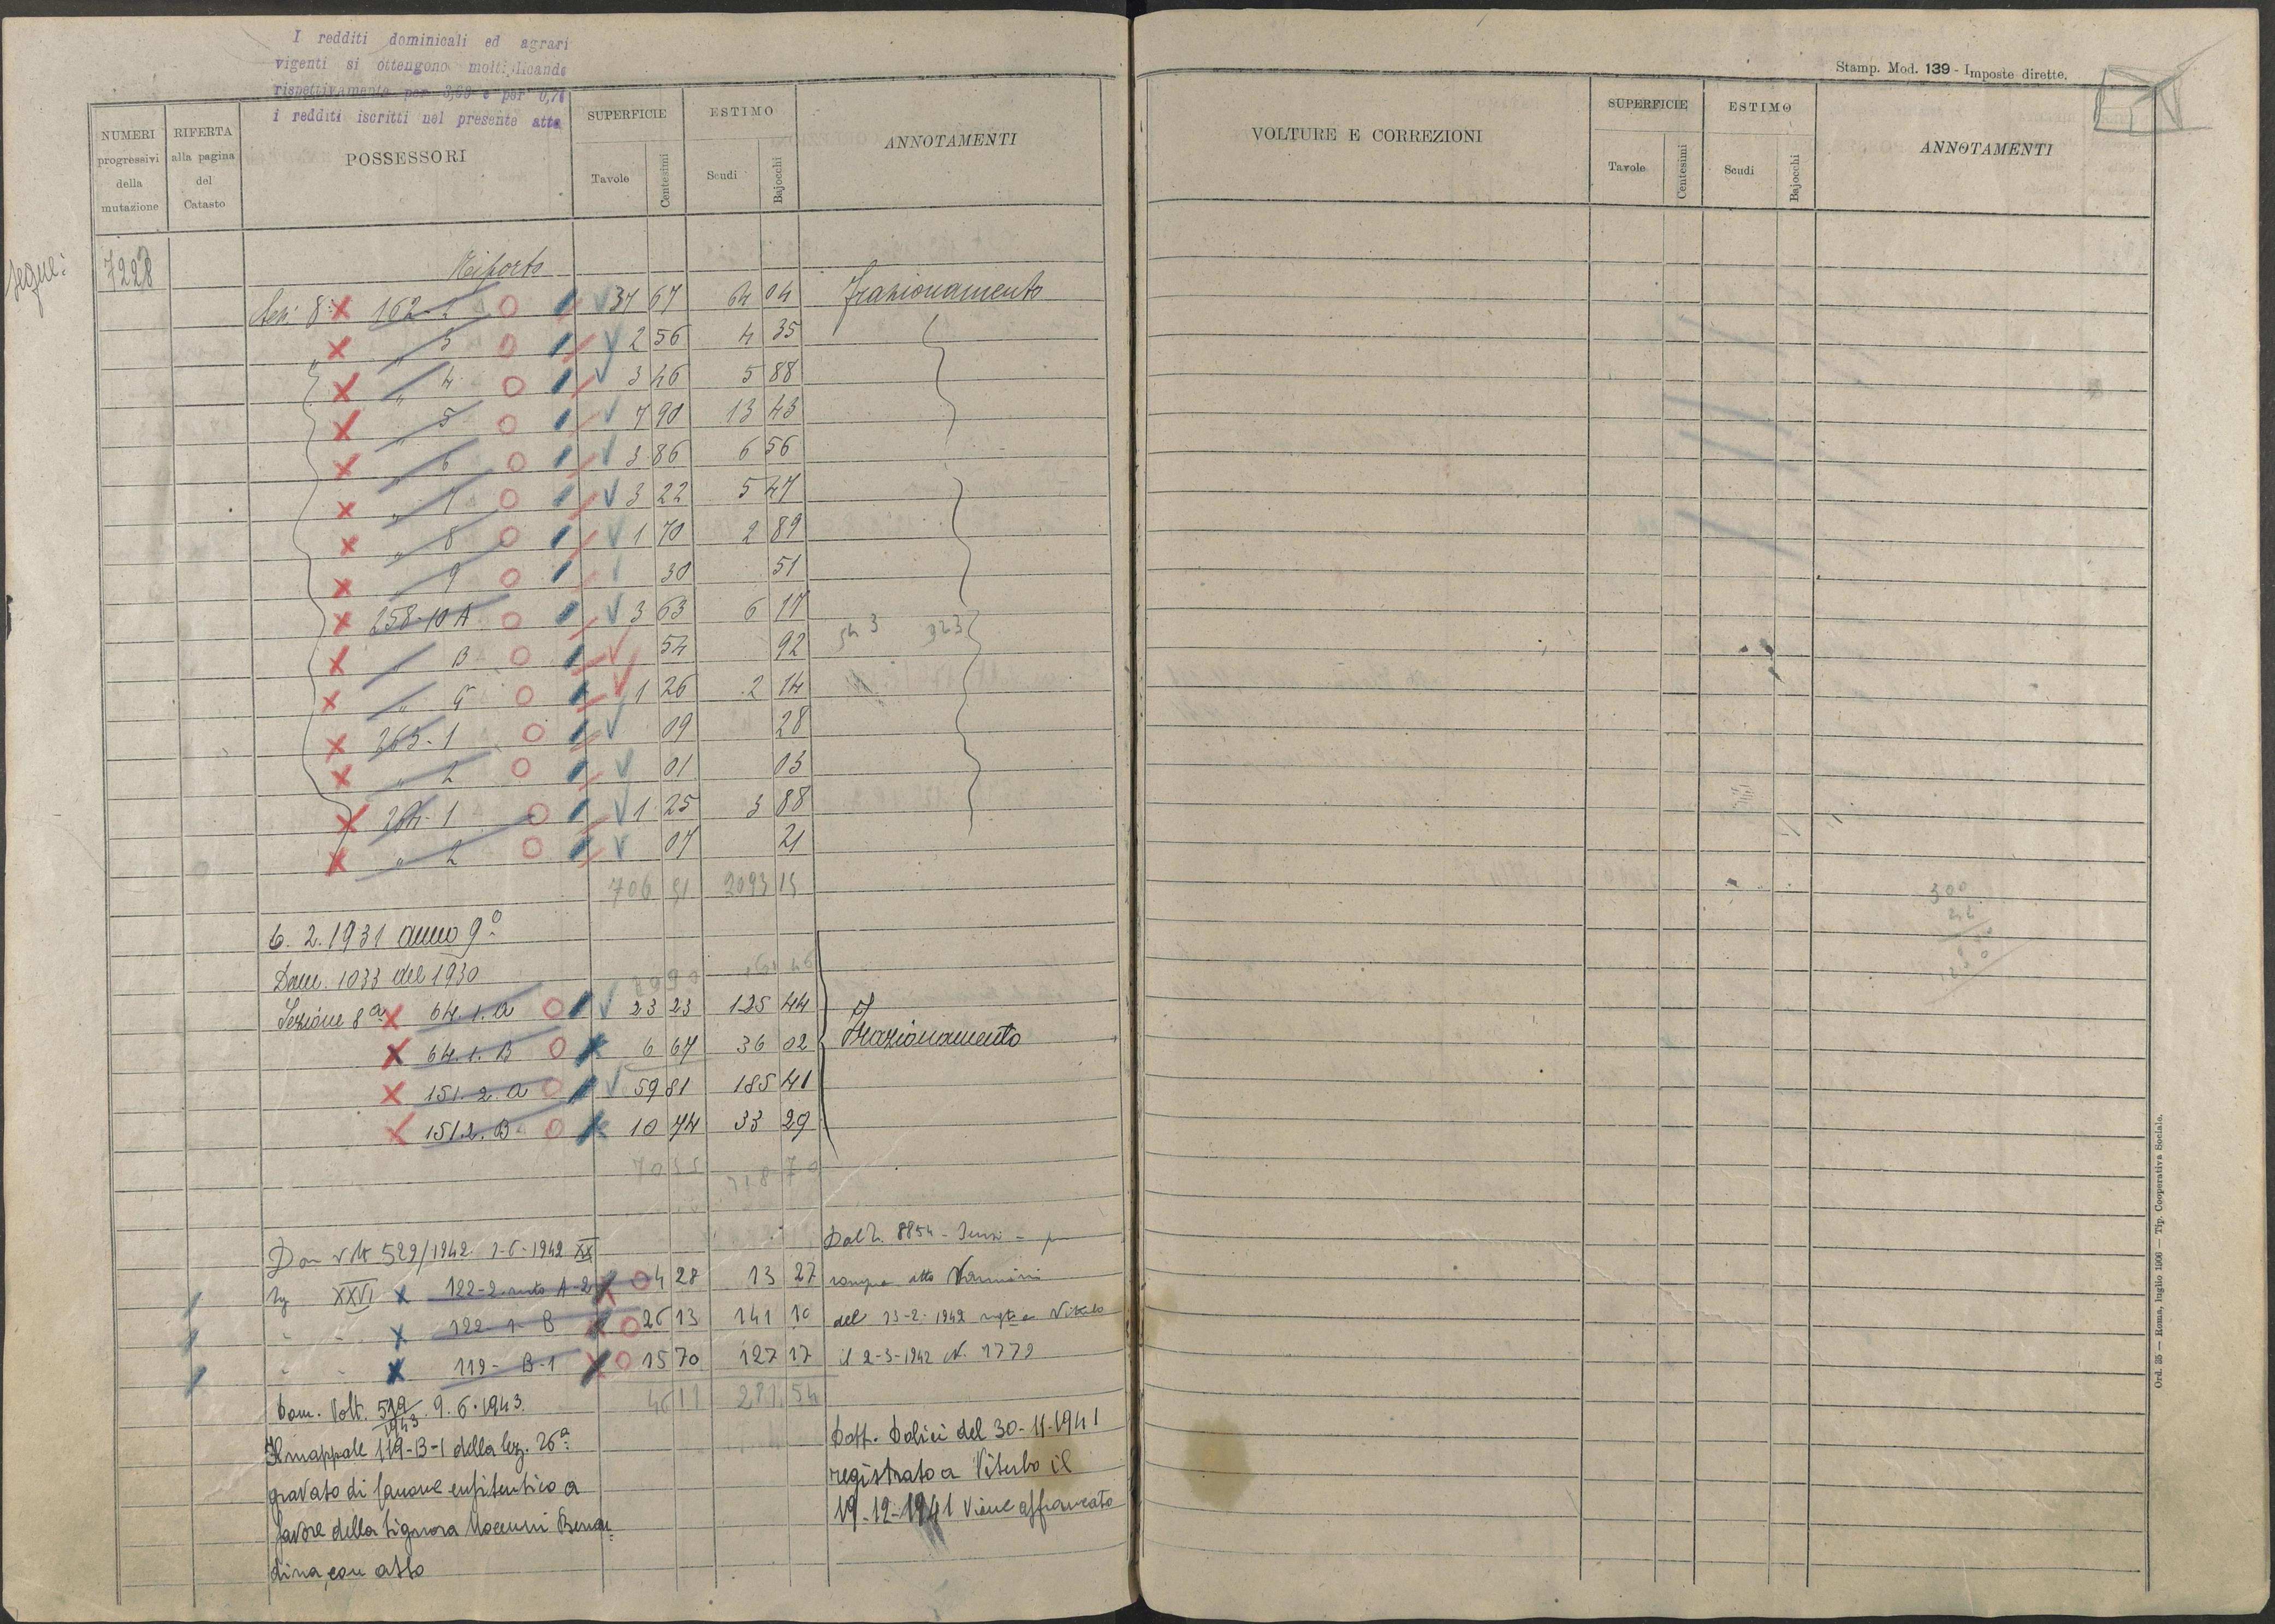 I redditi dominicali ed agrari
vigenti si ottengono moltiplicando
rispettivamente per 3,68 e per 0,71
i redditi iscritti nel presente atto
NUMERI progressivi della mutazione
RIFERTA alla pagina del Catasto
POSSESSORI
SUPERFICIE
Tavole
Centesimi
ESTIMO
Scudi
Bajocchi
ANNOTAMENTI
segue: 7228
Riporto
Sez. 8ª 162-2 37 67 64 04 Frazionamento
" 3 2 56 4 35
" 4 3 46 5 88
" 5 7 90 13 43
" 6 3 86 6 56
" 7 3 22 5 47
" 8 1 70 2 89
9 30 51
258-10 A 3 63 6 17
" B 54 92 323
" C 1 26 2 14
263-1 09 28
" 2 01 03
264-1 1 25 3 88
" 2 07 21
706 51 2093 15
6. 2. 1931 anno 9º
Dom. 1033 del 1930
Sezione 8ª 64.1.a 23 23 125 44
64.1.B 6 67 36 02 Frazionamento
151.2.a 59 81 185 41
151.2.B 10 74 33 29
Dom volt 529/1942 1-6-1942 XX Dal N. 8854
Sez XXVI 122-2 A-2 4 28 13 27 atto Vannini
" " 122-1-B 26 13 141 10 del 13-2-1942 Viterbo
" " 119-B-1 15 70 127 17 il 2-3-1942 N. 1779
46 11 281 54
Dom. Volt. 519/1943. 9.6.1943.
Il mappale 119-B-1 della sez. 26ª Dott. Dolici del 30-11-1941
gravato di canone enfiteutico a registrato a Viterbo il
favore della Signora Moccini Bernar= 19-12-1941 viene affrancato
dina, con atto
Stamp. Mod. 139 - Imposte dirette.
VOLTURE E CORREZIONI
SUPERFICIE
Tavole
Centesimi
ESTIMO
Scudi
Bajocchi
ANNOTAMENTI
300
Ord. 35 — Roma, luglio 1906 — Tip. Cooperativa Sociale.